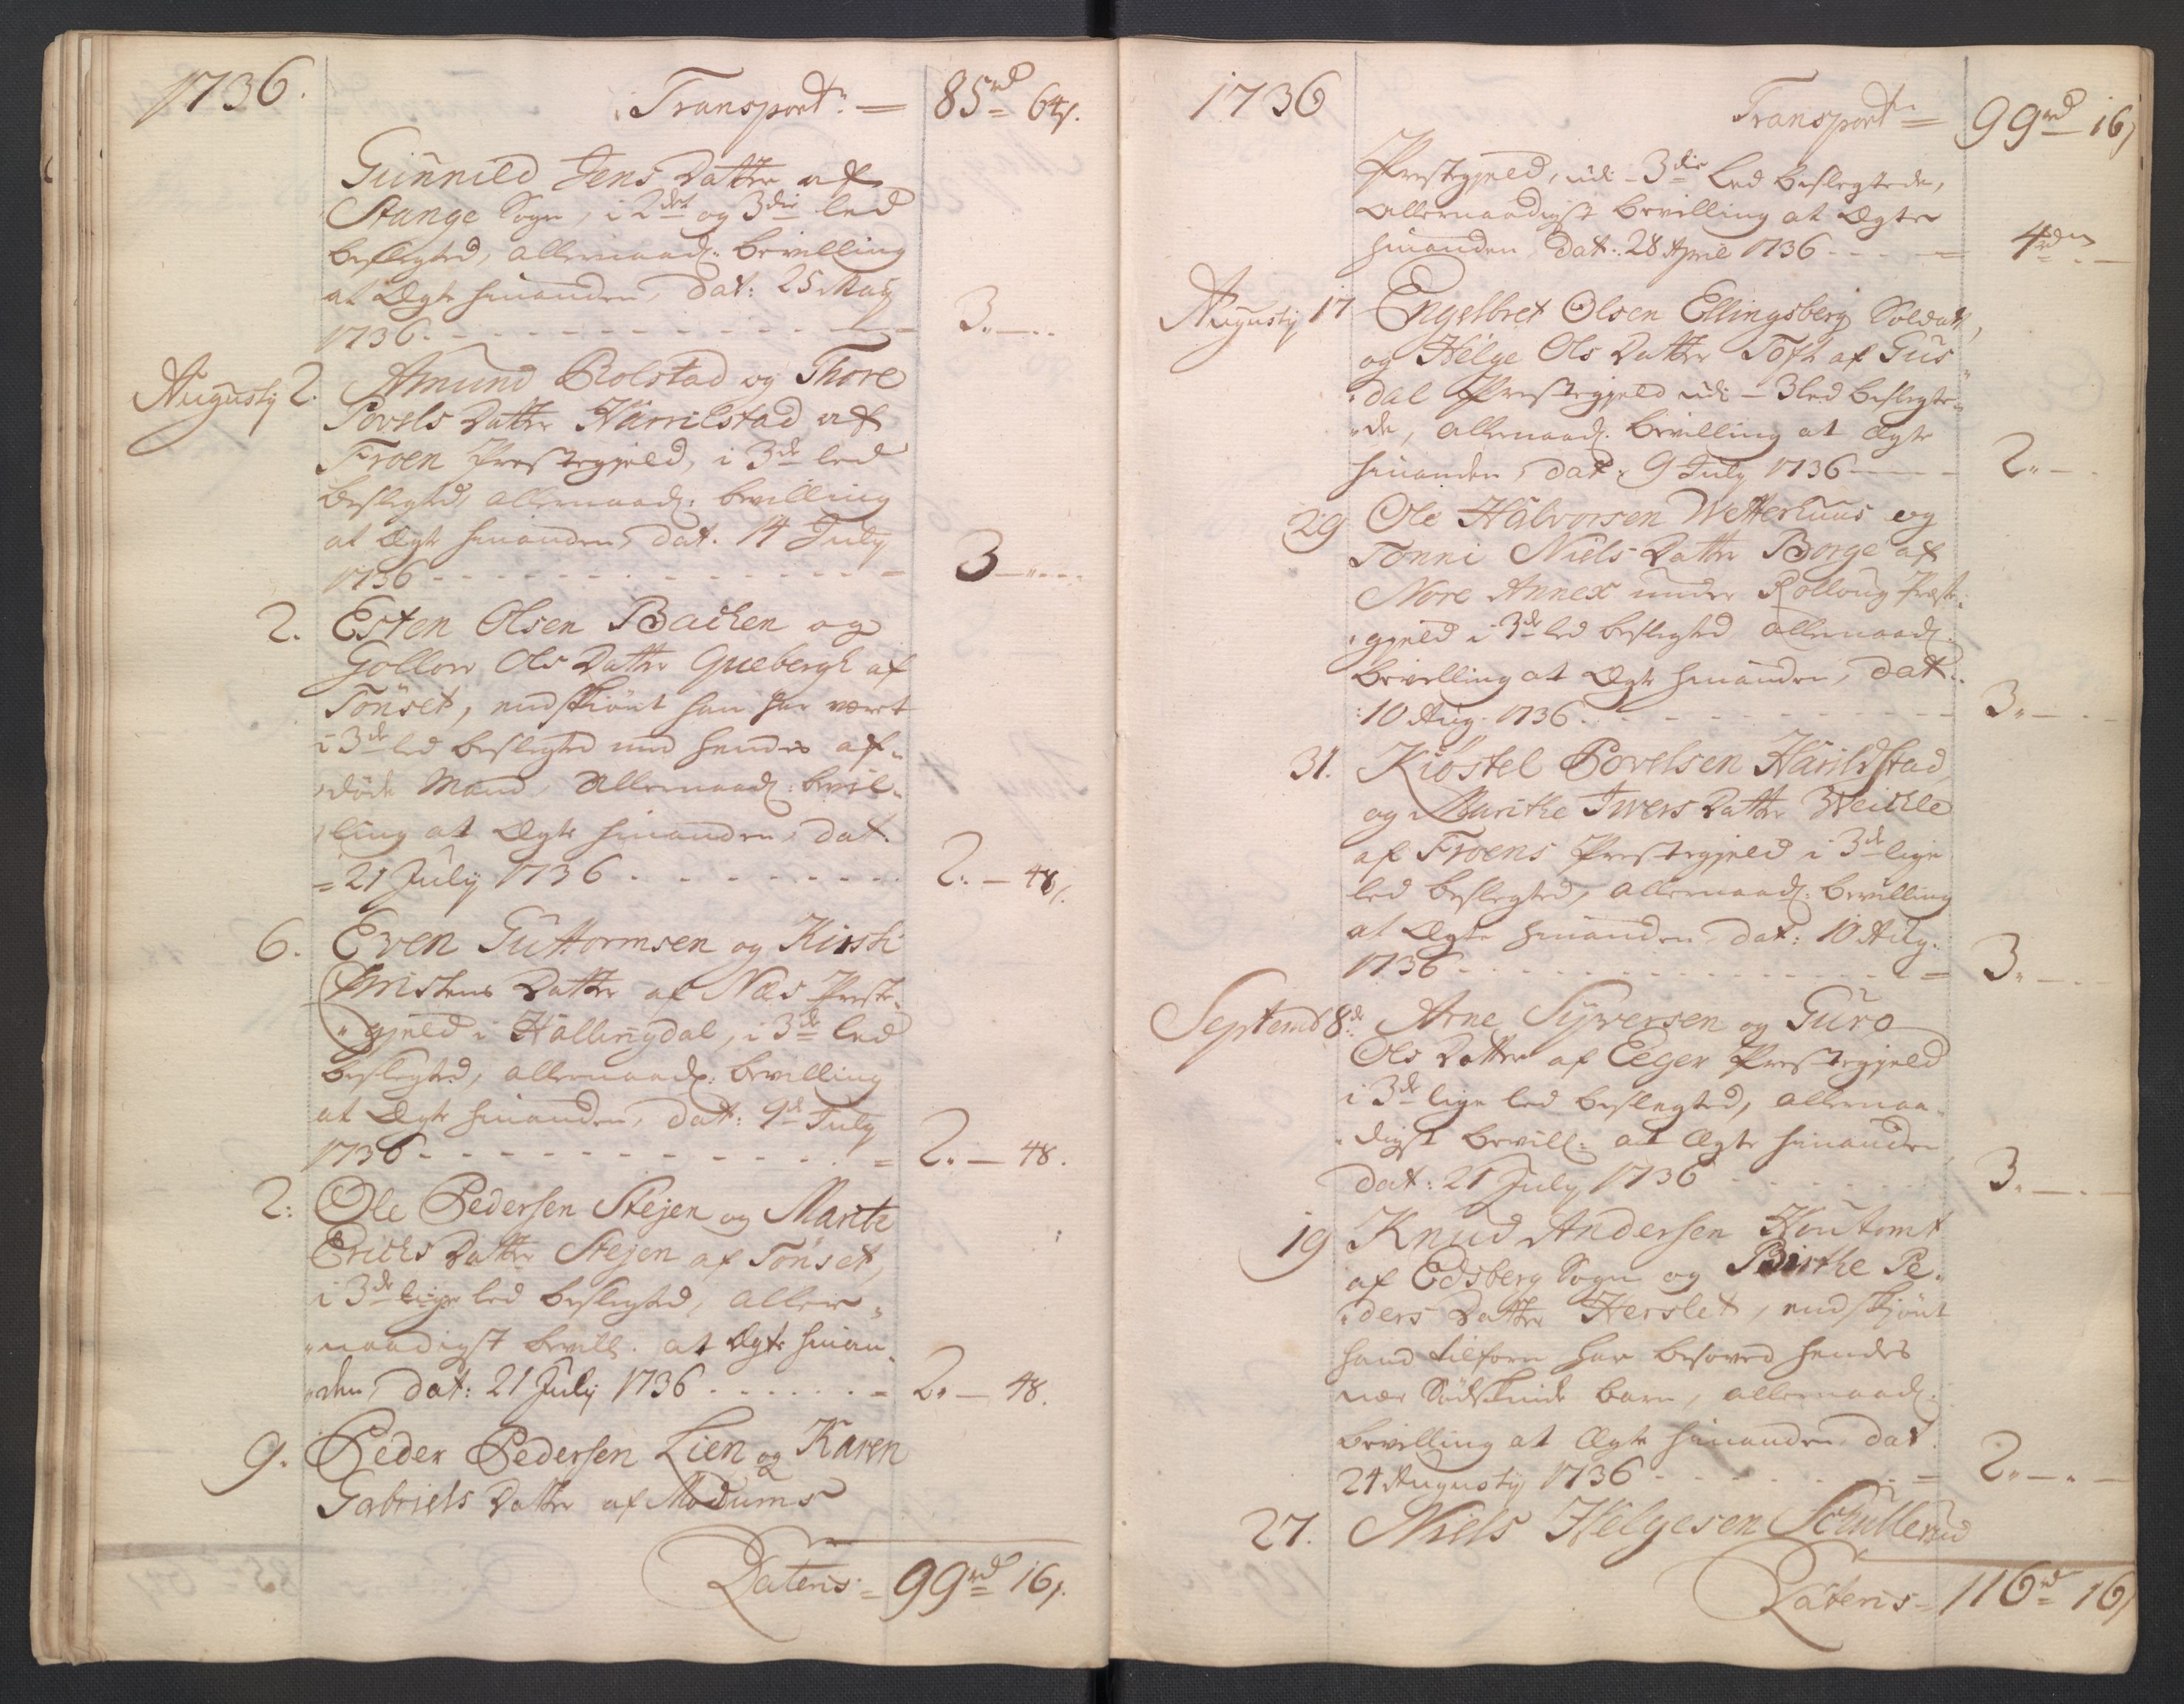 1736. Transport. = 85 rd 64 s.
Gunnild Jens Datter af
Stange Sogn, i 2det og 3die led
beslegted, allernaad: bevilling
at Ægte hinanden, dat: 25 Maÿ
1736. - - - - - - - - - - 3. — . .
Augustÿ 2. Amund Rolstad og Thore
Povels Datter Harrilstad af
Froen Prestegield, i 3de led
beslegted, allernaad: bevilling
at Ægte hinanden, dat. 14 July
1736 - - - - - - - - - - = 3 — . . .
2. Esten Olsen Bachen og
Gollow Ols Datter Quebergh af
Tönset, endskiönt han har veret
i 3de led beslegted med hendes af-
döde Mand, Allernaad: bevil-
ling at Ægte hinanden, dat.
= 21 Julÿ 1736 . - - - - - - 2. — 48 s.
6. Even Guttormsen og Kirsti
Christens Datter af Næs Preste-
gield i Hallingdal, i 3de led
beslegted, allernaad: bevilling
at Ægte hinanden, dat: 9de July
1736 - - - - - - - - - - = 2. — 48.
2: Ole Pedersen Stejen og Marite
Erichs Datter Stejen af Tönset,
i 3de lige led beslegted, aller-
naadigst bevill. at Ægte hinan-
den, dat: 21 Julij 1736 . . . . . . = 2. — 48.
9. Peder Pedersen Lien og Karen
Gabriels Datter af Modums
Lateris = 99 rd 16 s.
1736 Transport = 99 rd 16 s
Prestegjeld, udi - 3die Led beslegtede,
allernaadigst bevilling at Ægte
hinanden, dat: 28 April 1736 - - - = 4 rd . —
Augustÿ 17 Engelbret Olsen Ellingsberg Soldat,
og Helge Ols Datter Toft af Gus
dal Prestegjeld udi - 3 led beslegte-
de, allernaad. bevilling at Ægte
hinanden, dat: 9 July 1736 - - - 2. — .
29 Ole Halvorsen Wetterhuus og
Tonni Niels Datter Borge af
Nore Annex under Rolloug Præst-
gjeld i 3de led beslegted allernaad:
bevilling at Ægte hinanden, dat:
10 Aug. 1736. - - - - - - - - 3. — . —
31. Kiöstel Povelsen Harildstad
og Marithe Iwers Datter Weichle
af Froens Prestegjeld i 3de lige
led beslegted, allernaad: bevilling
at Ægte hinanden, dat: 10 Aug.
1736 - - - - - - - - - - = 3. — . —
Septemb 8de Arne Syversen og Guro
Ols Datter af Eeger Prestegjeld
i 3de lige led beslegted, allernaa-
digst bevill: at Ægte hinanden
dat: 21 July 1736 - - - - - 3. — . —
19 Knud Andersen Houtomt
af Edsberg Sogn og Birthe Pe-
ders Datter Herslet, endskjönt
hand tilforn har besoved hendes
nær Södskinde barn, allernaad:
bevilling at Ægte hinanden dat.
24 Augustÿ 1736 - - - - - - = 2. — . —
27. Niels Helgesen Schullerud
Lateris = 116 rd 16 s